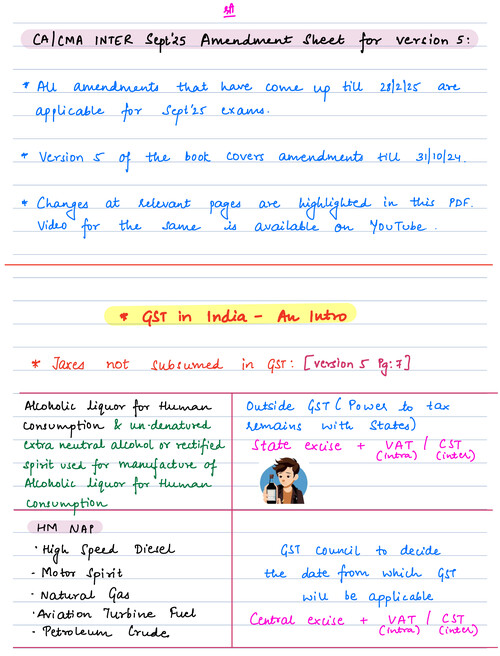 श्री
CA/CMA INTER Sept'25 Amendment Sheet for version 5:
* All amendments that have come up till 28/2/25 are
applicable for Sept'25 exams.
* Version 5 of the book covers amendments till 31/10/24.
* Changes at relevant pages are highlighted in this PDF.
Video for the same is available on YouTube.
* GST in India - An Intro
* Taxes not subsumed in GST: [version 5 Pg:7]
Alcoholic liquor for Human
Consumption & un-denatured
extra neutral alcohol or rectified
spirit used for manufacture of
Alcoholic liquor for Human
Consumption
Outside GST (Power to tax
remains with States)
State excise + VAT / CST
(intra) (inter)
HM NAP
· High Speed Diesel
· Motor Spirit
· Natural Gas
· Aviation Turbine Fuel
· Petroleum Crude
GST Council to decide
the date from which GST
will be applicable
Central excise + VAT / CST
(intra) (inter)